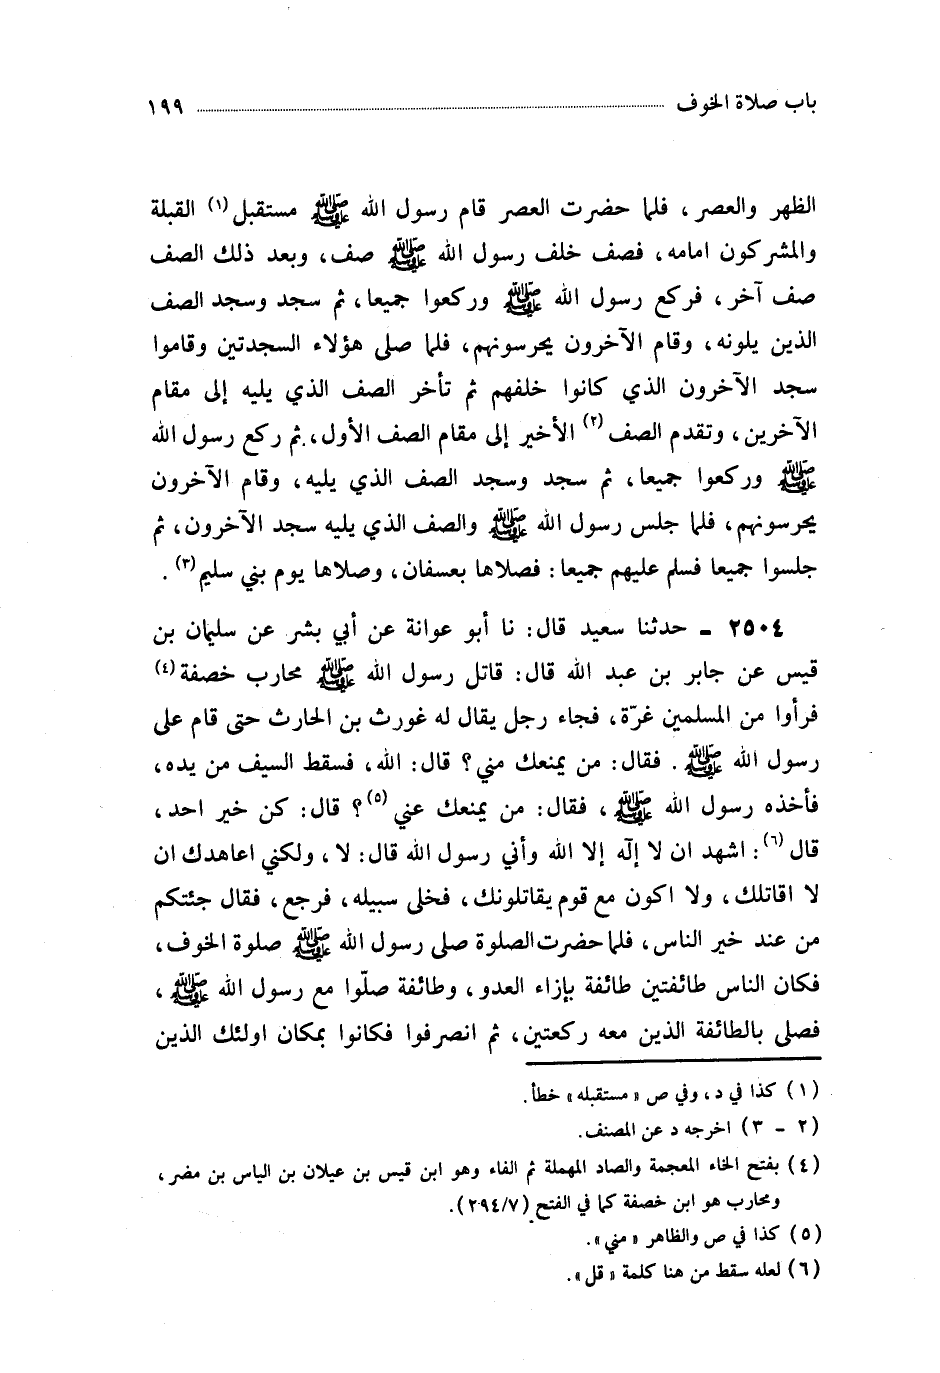 باب صلاة الخوف ........................................ ١٩٩
الظهر والعصر ، فلما حضرت العصر قام رسول الله ﷺ مستقبل (١) القبلة
والمشركون امامه ، فصف خلف رسول الله ﷺ صف ، وبعد ذلك الصف
صف آخر ، فركع رسول الله ﷺ وركعوا جميعا ، ثم سجد وسجد الصف
الذين يلونه ، وقام الآخرون يحرسونهم ، فلما صلى هؤلاء السجدتين وقاموا
سجد الآخرون الذي كانوا خلفهم ثم تأخر الصف الذي يليه إلى مقام
الآخرين ، وتقدم الصف (٢) الأخير إلى مقام الصف الأول ، ثم ركع رسول الله
ﷺ وركعوا جميعا ، ثم سجد وسجد الصف الذي يليه ، وقام الآخرون
يحرسونهم ، فلما جلس رسول الله ﷺ والصف الذي يليه سجد الآخرون ، ثم
جلسوا جميعا فسلم عليهم جميعا : فصلاها بعسفان ، وصلاها يوم بني سليم (٣) .
٢٥٠٤ ـ حدثنا سعيد قال : نا أبو عوانة عن أبي بشر عن سليمان بن
قيس عن جابر بن عبد الله قال : قاتل رسول الله ﷺ محارب خصفة (٤)
فرأوا من المسلمين غرّة ، فجاء رجل يقال له غورث بن الحارث حتى قام على
رسول الله ﷺ . فقال : من يمنعك مني ؟ قال : الله ، فسقط السيف من يده ،
فأخذه رسول الله ﷺ ، فقال : من يمنعك عني (٥) ؟ قال : كن خير احد ،
قال (٦) : اشهد ان لا إلٓه إلا الله وأني رسول الله قال : لا ، ولكني اعاهدك ان
لا اقاتلك ، ولا اكون مع قوم يقاتلونك ، فخلى سبيله ، فرجع ، فقال جئتكم
من عند خير الناس ، فلما حضرت الصلوة صلى رسول الله ﷺ صلوة الخوف ،
فكان الناس طائفتين طائفة بإزاء العدو ، وطائفة صلّوا مع رسول الله ﷺ ،
فصلى بالطائفة الذين معه ركعتين ، ثم انصرفوا فكانوا بمكان اولئك الذين
(١) كذا في د ، وفي ص « مستقبله » خطأ .
(٢ - ٣) اخرجه د عن المصنف .
(٤) بفتح الخاء المعجمة والصاد المهملة ثم الفاء وهو ابن قيس بن عيلان بن الياس بن مضر ،
ومحارب هو ابن خصفة كما في الفتح (٢٩٤/٧) .
(٥) كذا في ص والظاهر « مني » .
(٦) لعله سقط من هنا كلمة « قل » .